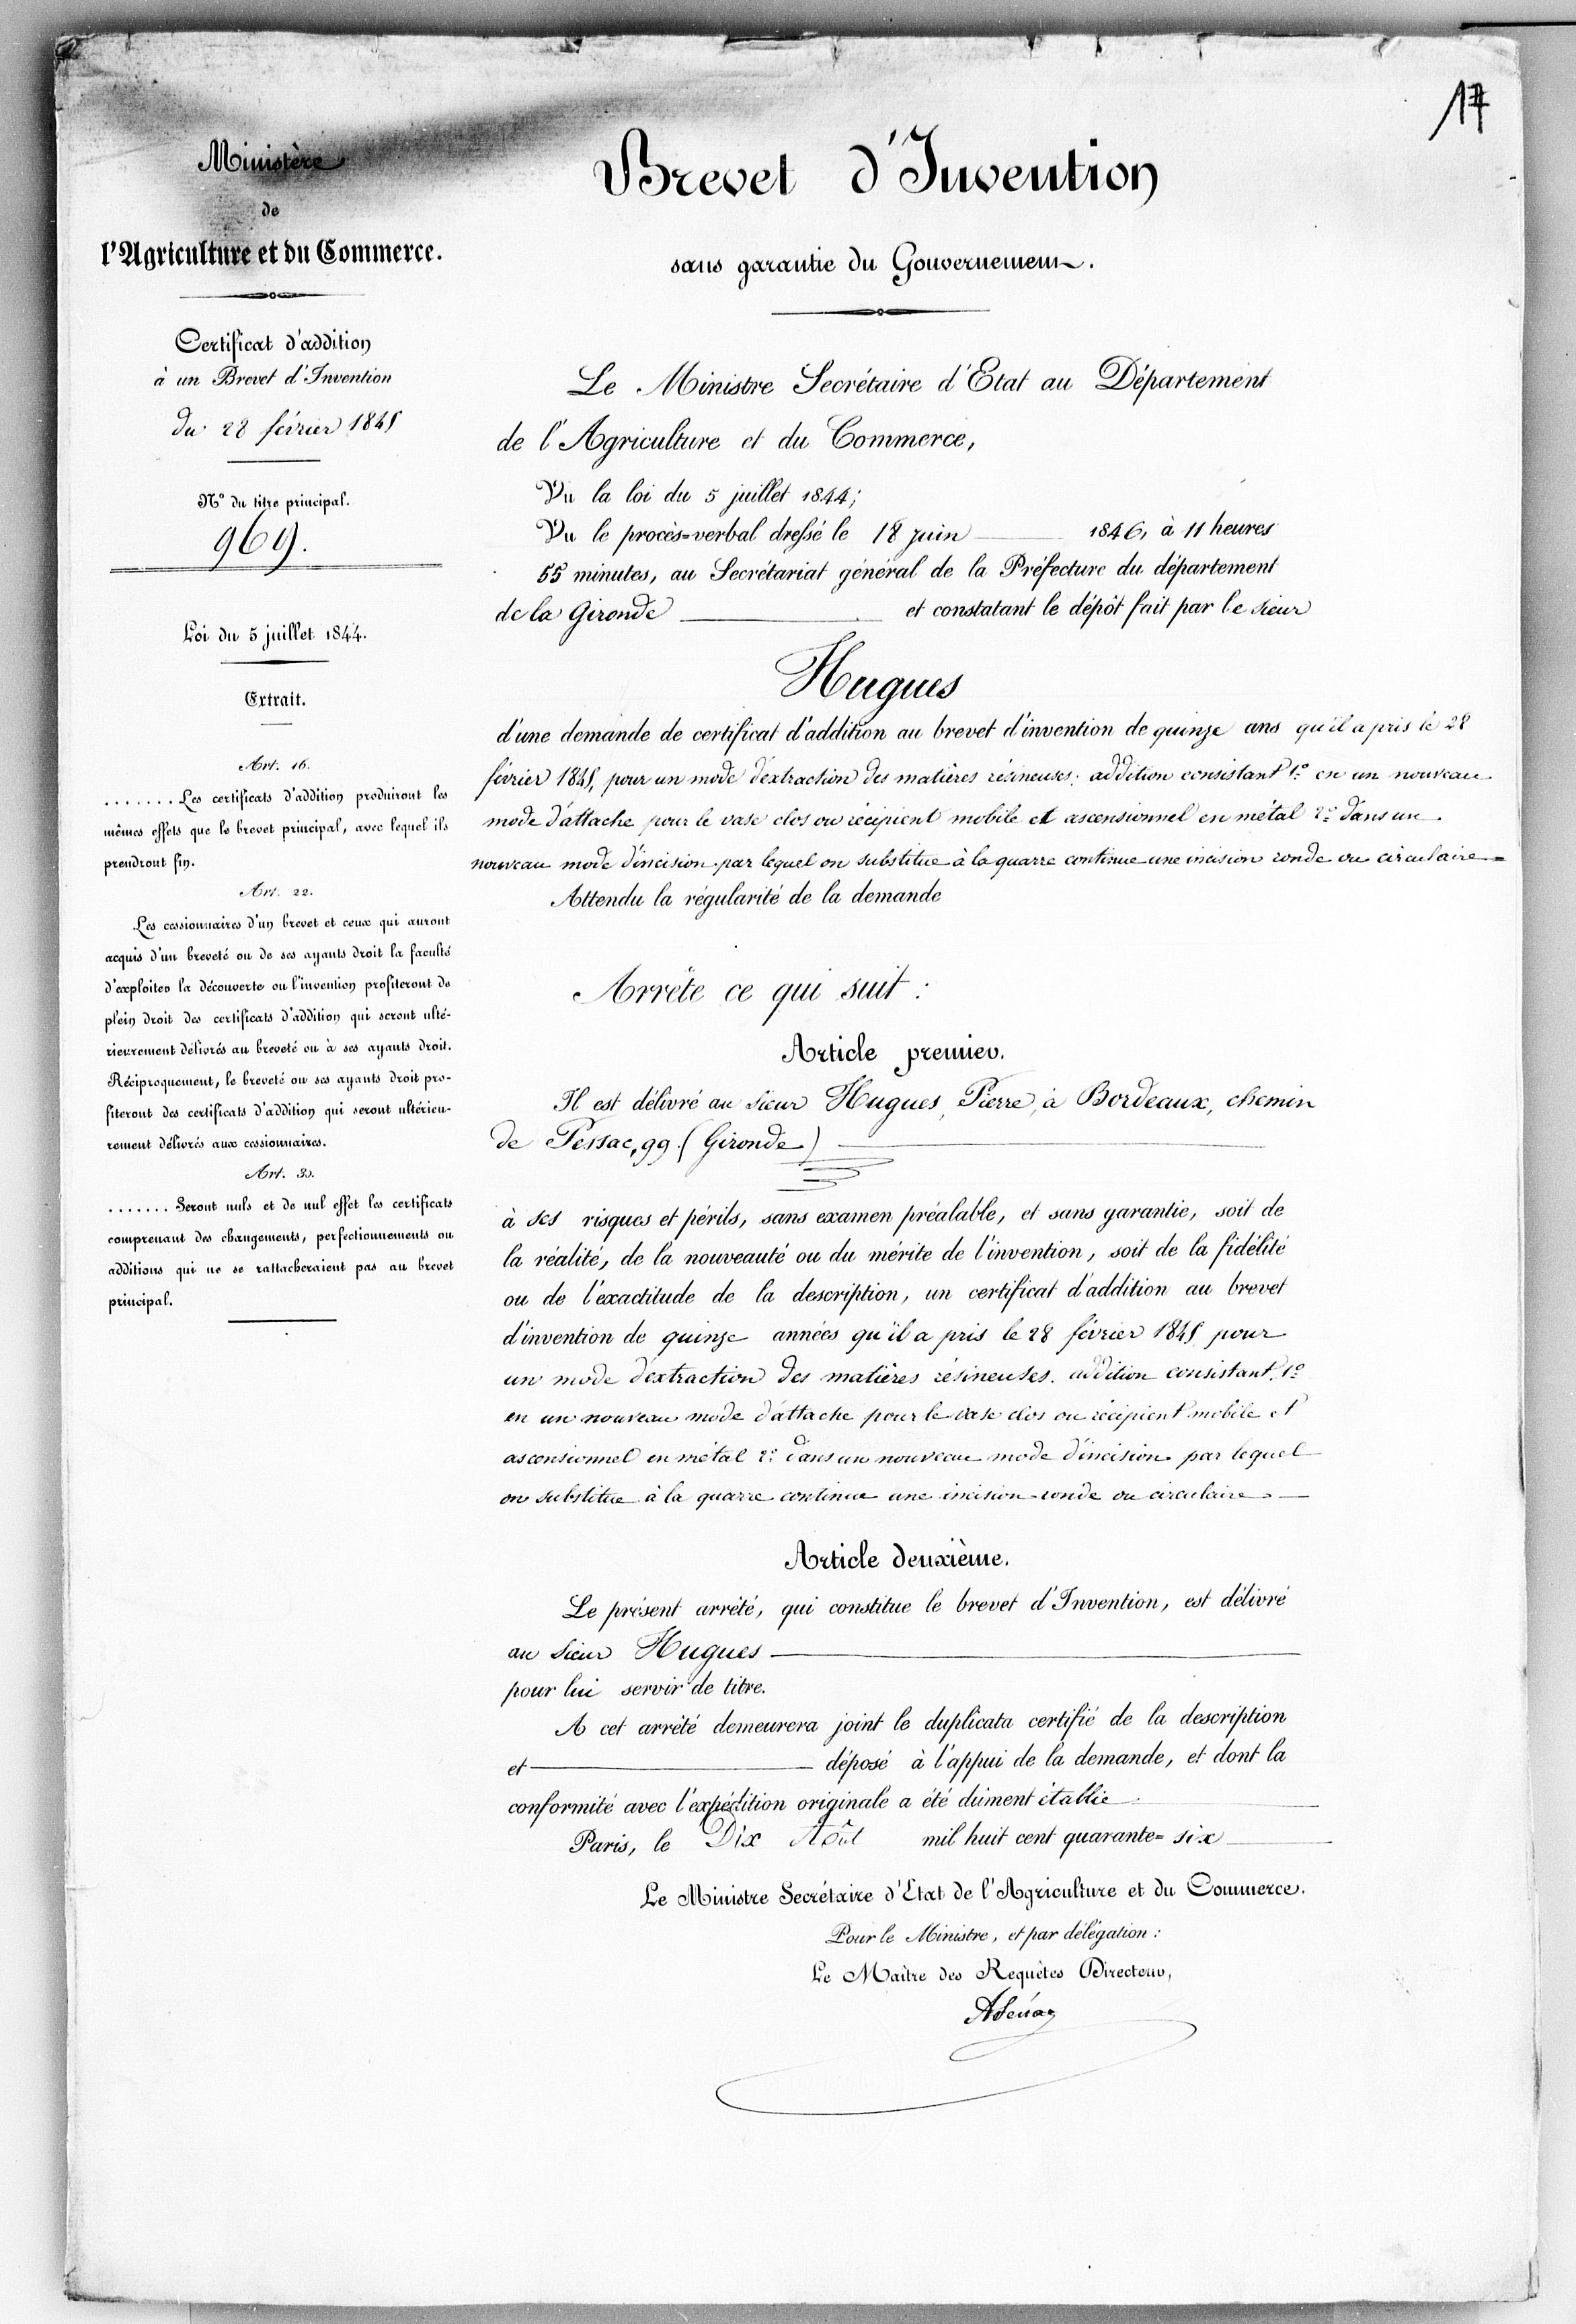 17
Ministère
de
l'Agriculture et du Commerce.
Certificat d'addition
à un Brevet d'Invention
du 28 février 1845
N° du titre principal.
969.
Loi du 5 juillet 1844.
Extrait.
Art. 16.
....... Les certificats d'addition produiront les
mêmes effets que le brevet principal, avec lequel ils
prendront fin.
Art. 22.
Les cessionnaires d'un brevet et ceux qui auront
acquis d'un breveté ou de ses ayants droit la faculté
d'exploiter la découverte ou l'invention profiteront de
plein droit des certificats d'addition qui seront ulté-
rieurement délivrés au breveté ou à ses ayants droit.
Réciproquement, le breveté ou ses ayants droit pro-
fiteront des certificats d'addition qui seront ultérieu-
rement délivrés aux cessionnaires.
Art. 30.
....... Seront nuls et de nul effet les certificats
comprenant des changements, perfectionnements ou
additions qui ne se rattacheraient pas au brevet
principal.
Brevet d'Invention
sans garantie du Gouvernement.
Le Ministre Secrétaire d'Etat au Département
de l'Agriculture et du Commerce,
Vu la loi du 5 juillet 1844;
Vu le procès=verbal dressé le 18 juin 1846, à 11 heures
55 minutes, au Secrétariat général de la Préfecture du département
de la Gironde et constatant le dépôt fait par le sieur
Hugues
d'une demande de certificat d'addition au brevet d'invention de quinze ans qu'il a pris le 28
février 1845, pour un mode d'extraction des matières résineuses; addition consistant 1° en un nouveau
mode d'attache pour le vase clos ou récipient mobile et ascensionnel en métal 2° dans un
nouveau mode d'incision par lequel on substitue à la quarre continue une incision ronde ou circulaire
Attendu la régularité de la demande
Arrête ce qui suit :
Article premier.
Il est délivré au sieur Hugues, Pierre, à Bordeaux, chemin
de Pessac, 99 (Gironde)
à ses risques et périls, sans examen préalable, et sans garantie, soit de
la réalité, de la nouveauté ou du mérite de l'invention, soit de la fidélité
ou de l'exactitude de la description, un certificat d'addition au brevet
d'invention de quinze années qu'il a pris le 28 février 1845 pour
un mode d'extraction des matières résineuses. addition consistant 1°
en un nouveau mode d'attache pour le vase clos ou récipient mobile et
ascensionnel en métal 2° dans un nouveau mode d'incision par lequel
on substitue à la quarre continue une incision ronde ou circulaire
Article deuxième.
Le présent arrêté, qui constitue le brevet d'Invention, est délivré
au sieur Hugues
pour lui servir de titre.
A cet arrêté demeurera joint le duplicata certifié de la description
et déposé à l'appui de la demande, et dont la
conformité avec l'expédition originale a été dûment établie.
Paris, le Dix Août mil huit cent quarante= six
Le Ministre Secrétaire d'Etat de l'Agriculture et du Commerce.
Pour le Ministre, et par délégation :
Le Maître des Requêtes Directeur,